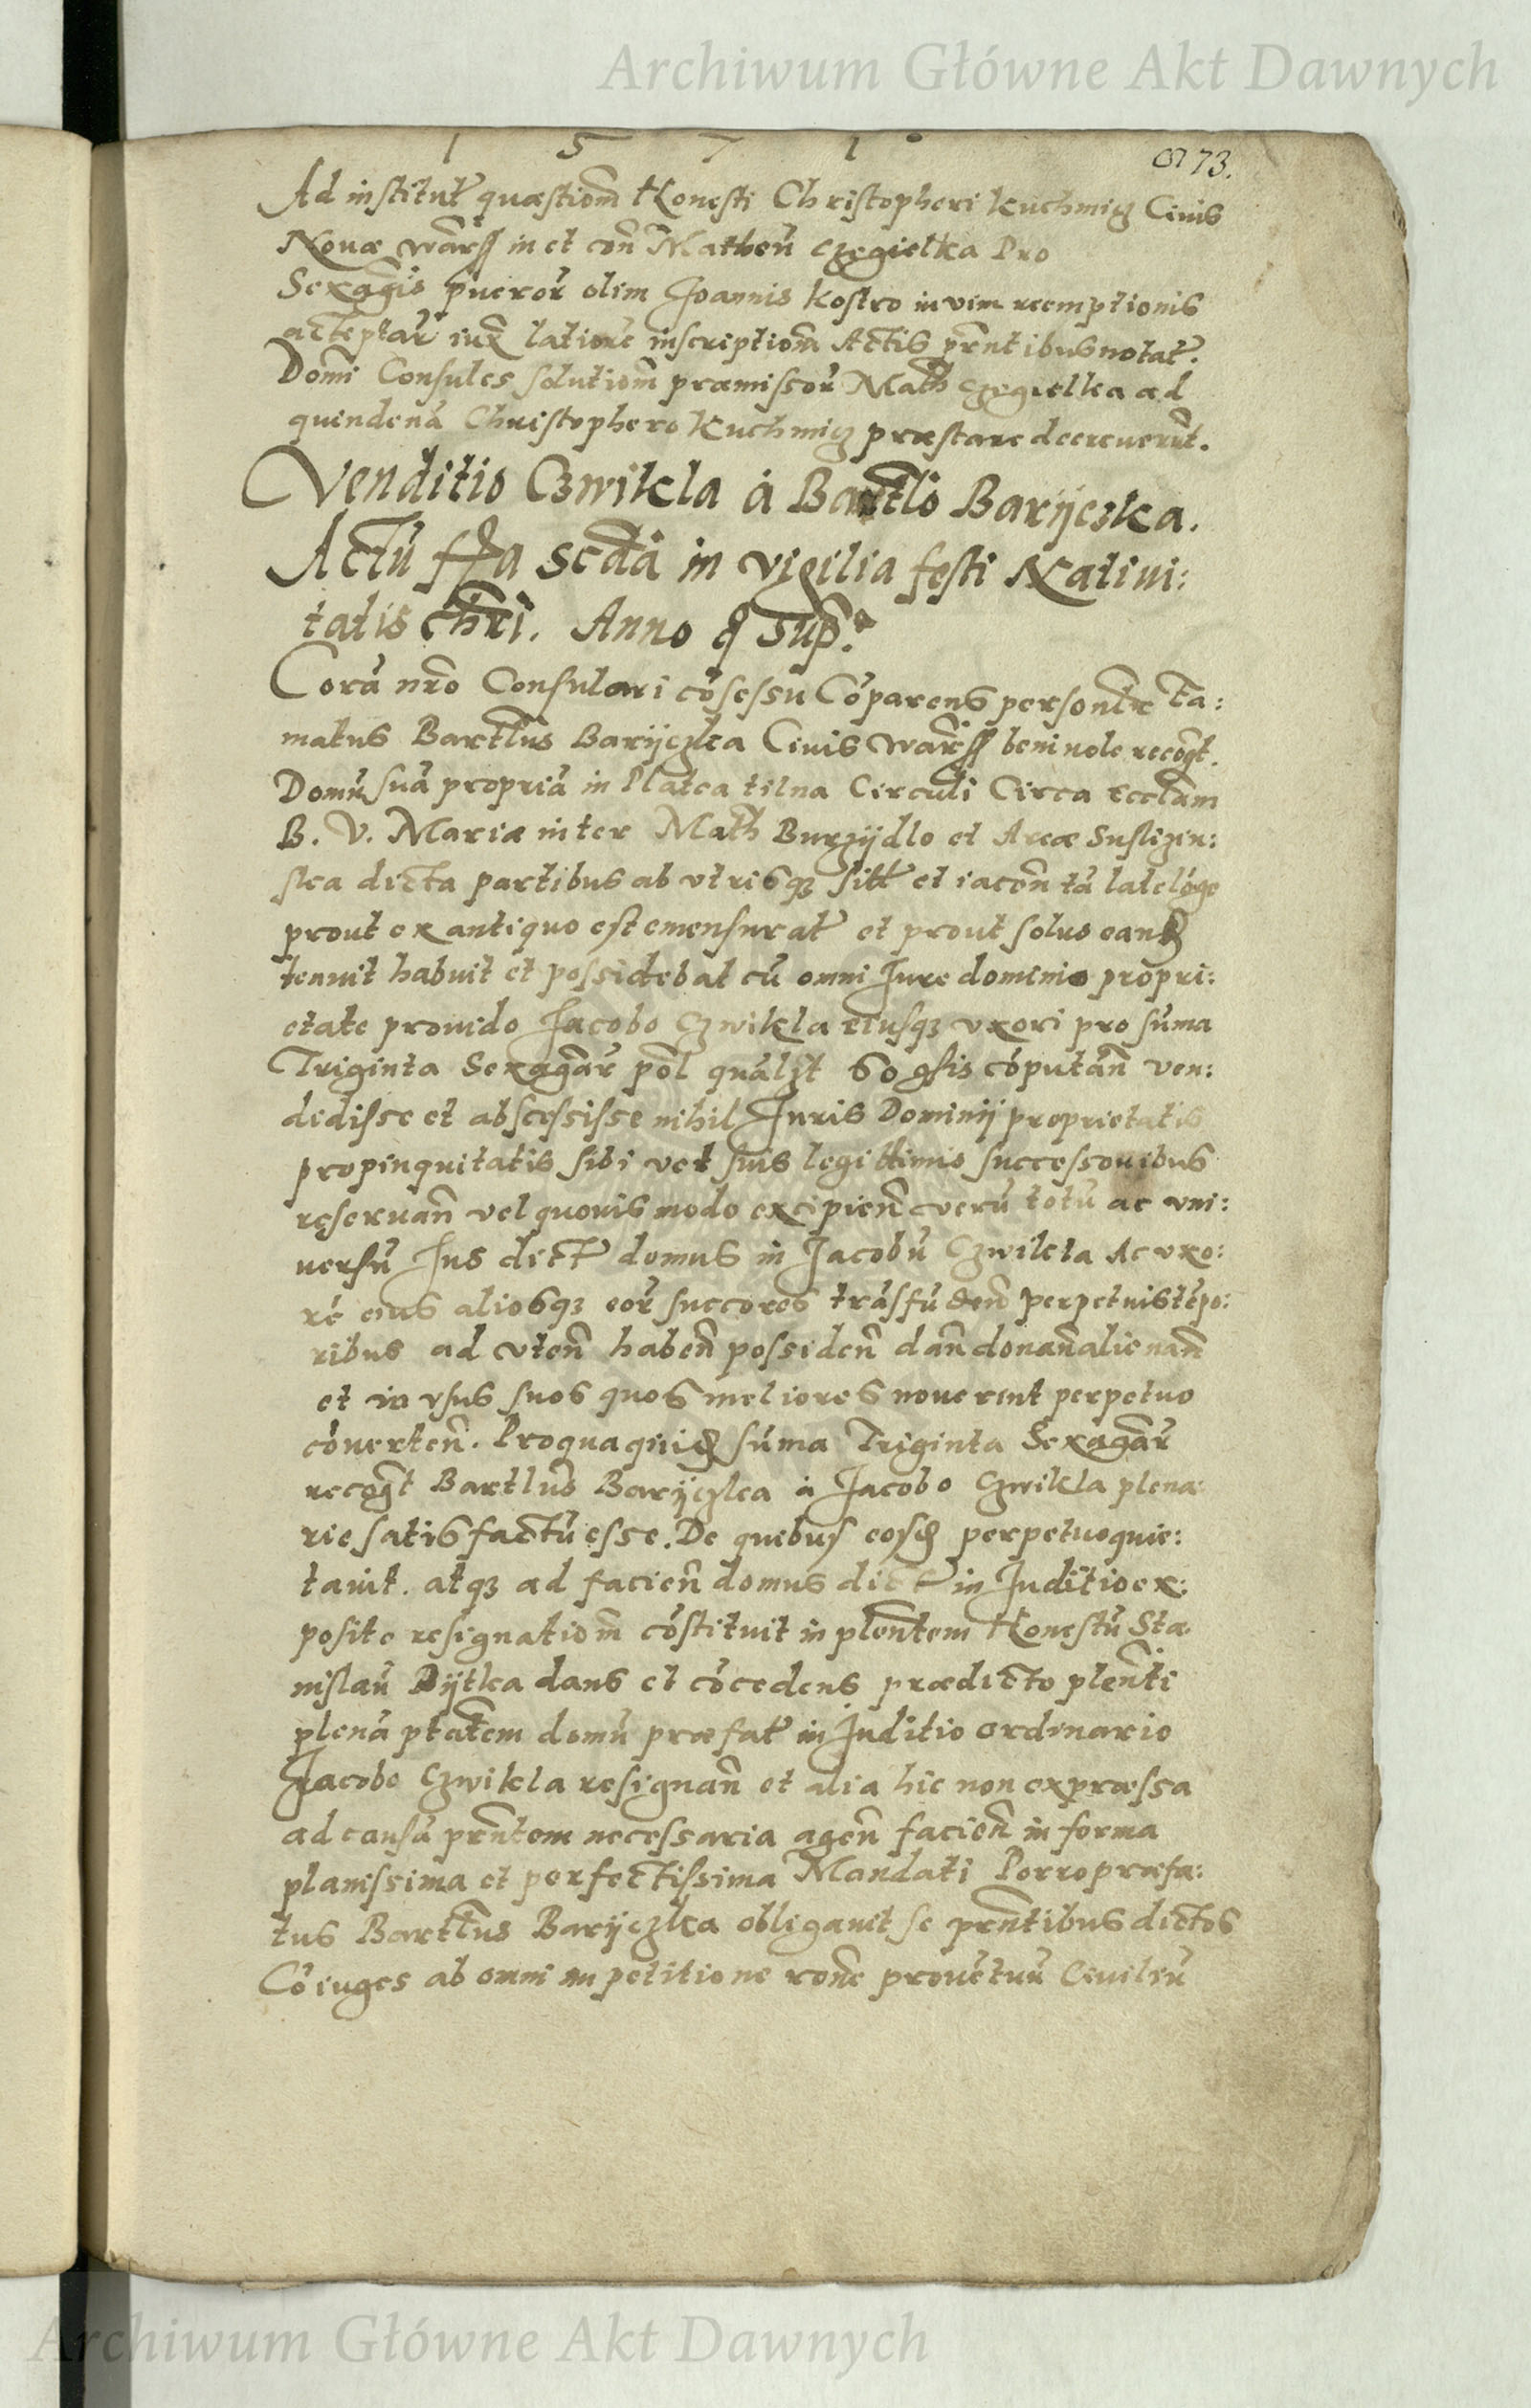 Archiwum Główne Akt Dawnych
1 5 7 1
73.
Ad institut quæstiom Honesti Christopheri Kuchmig Ciuis
Nouæ warss in et con Matheu Czegielka Pro
Sexagis pueror olim Joannis Kostro in vim reemptionis
acceptar iux latiore inscriptiom Actis prntibus notat.
Domi Consules solutiom præmissor Math Czegielka ad
quindena Christophero Kuchmig præstare decreuerut.
Venditio Czwikla à Bartlo Baryczka.
Actu ffa scda in vigilia festi Natiui:
tatis chri. Anno q sup.
Corà nro Consulari cosessu Coparens personlr Fa:
matus Bartlus Baryczka Ciuis warss beniuole recogt.
Domu sua propria in Platea tilna Circuli Circa Ecclam
B. V. Mariæ inter Math Burzydlo et Areæ Suslezin:
ska dicta partibus ab vtrisqz sitt et iacen ta late loge
prout ex antiquo est emensurat et prout solus eand
tenuit habuit et possidebat cu omni Jure dominio propri:
etate prouido Jacobo Czwikla eiusqz vxori pro suma
Triginta Sexagar pol qualit 60 gsis coputan ven:
dedisse et abscessisse nihil Juris Dominij proprietatis
propinquitatis sibi vel suis legittimis successoribus
reseruan vel quouis modo excipien veru totu ac vni:
uersu Jus dict domus in Jacobu Czwikla Ac vxo:
re eius aliosqz eor succores trasfuden perpetuis tepo:
ribus ad vten haben possiden dan donan alienan
et in vsus suos quos meliores nouerint perpetuo
couerten. Pro qua quid suma Triginta Sexagar
recogt Bartlus Baryczka à Jacobo Czwikla plena:
rie satisfactu esse. De quibus eosd perpetuo quie:
tauit. atqz ad facien domus dict in Juditio ex:
posito resignatiom costituit in plentem Honestu Sta:
nislau Dytka dans et cocedens prædicto plenti
plena ptatem domu præfat in Juditio ordinario
Jacobo Czwikla resignan et alia hic non expræssa
ad causa prntem necessaria agen facien in forma
planissima et perfectissima Mandati Porro præfa:
tus Bartlus Baryczka obligauit se prntibus dictos
Coiuges ab omni impetitione rone prouetuu Ciuiliu
Archiwum Główne Akt Dawnych